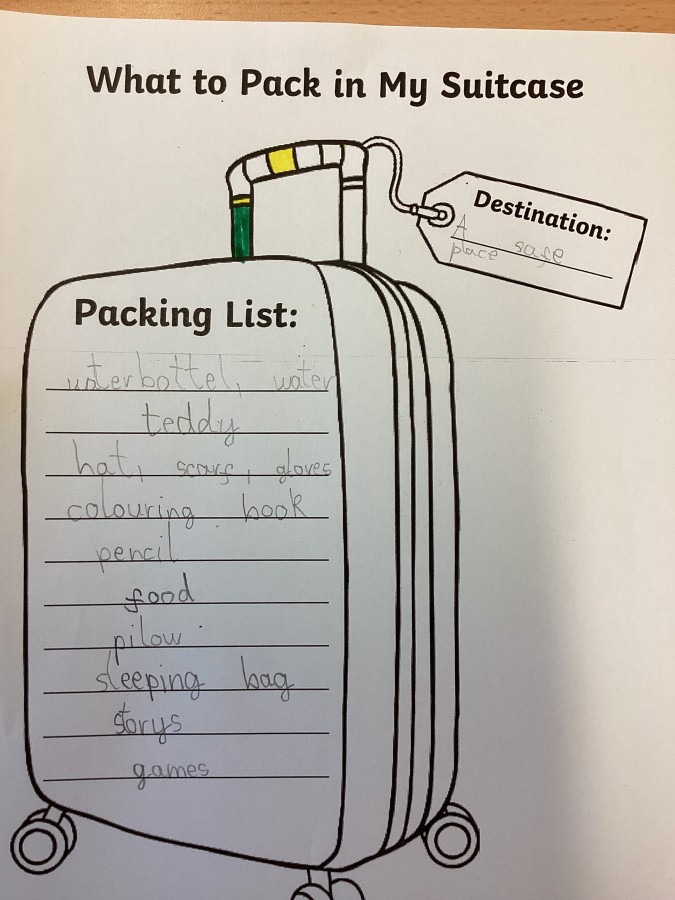 What to Pack in My Suitcase
Destination:
A
place safe
Packing List:
waterbottel, water
teddy
hat, scarf, gloves
colouring book
pencil
food
pilow
sleeping bag
storys
games